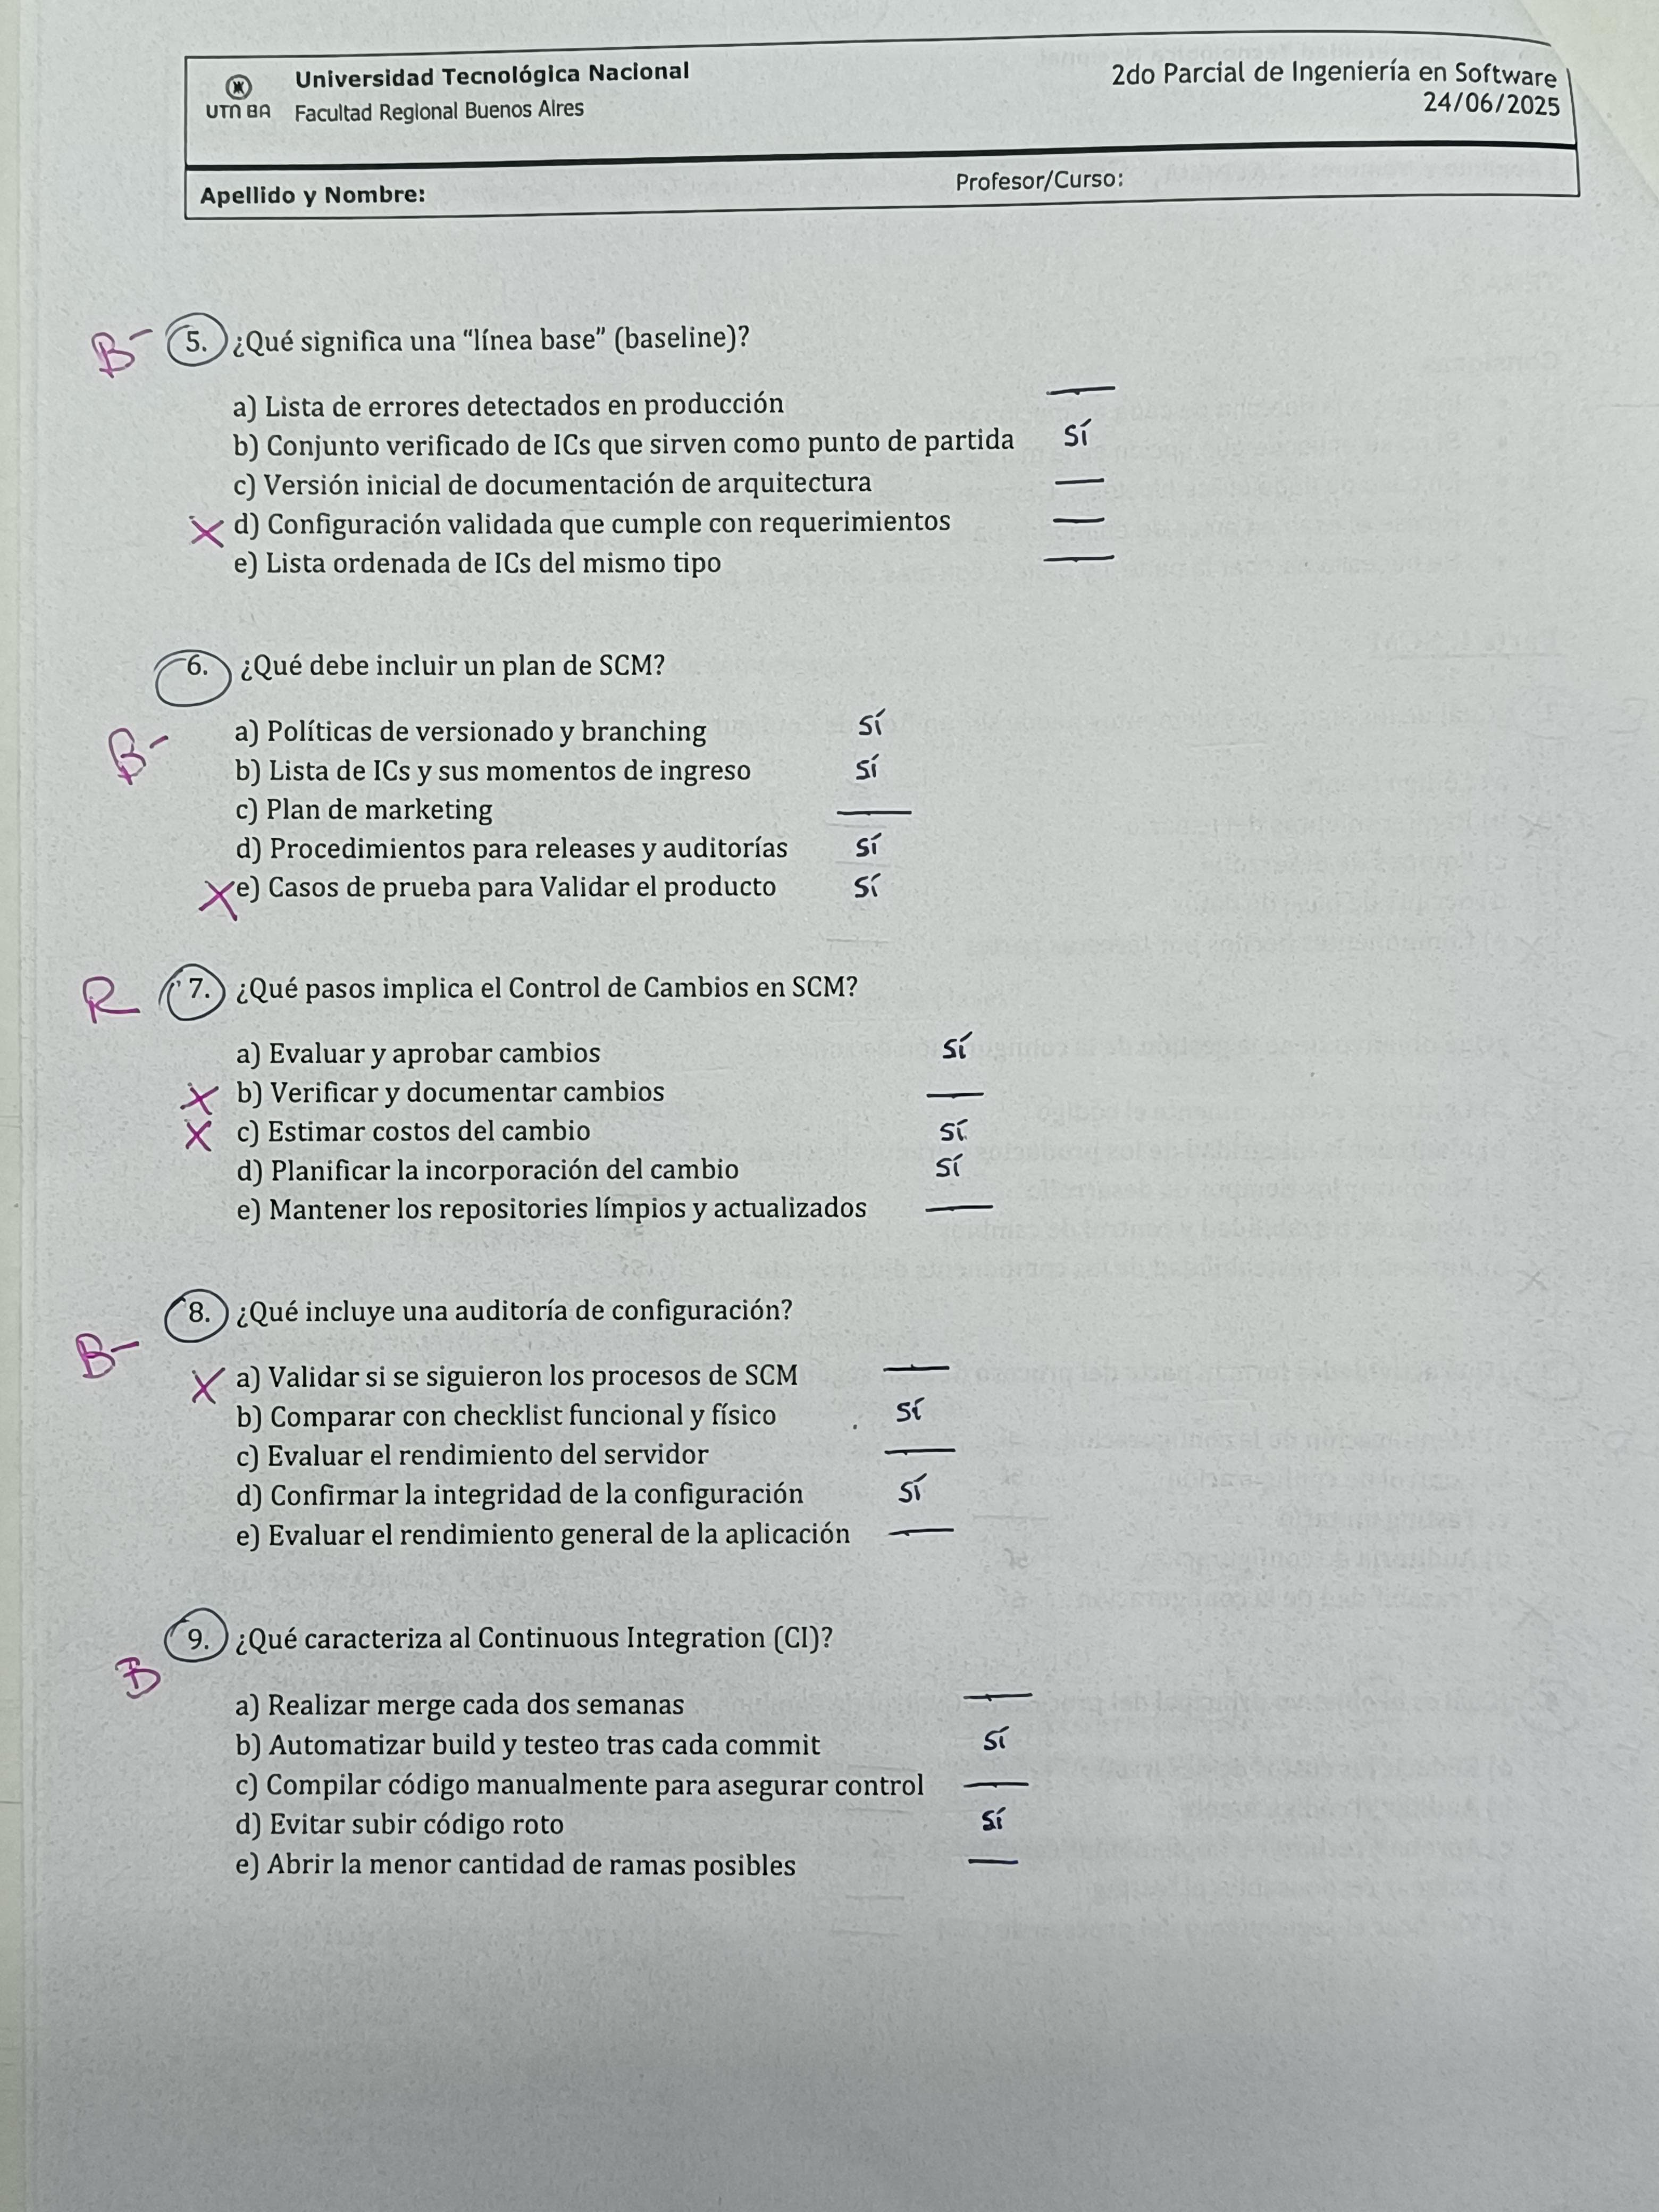 Universidad Tecnológica Nacional
UTN BA Facultad Regional Buenos Aires
2do Parcial de Ingeniería en Software
24/06/2025
Apellido y Nombre:
Profesor/Curso:
B- 5. ¿Qué significa una “línea base” (baseline)?
a) Lista de errores detectados en producción —
b) Conjunto verificado de ICs que sirven como punto de partida Sí
c) Versión inicial de documentación de arquitectura —
X d) Configuración validada que cumple con requerimientos —
e) Lista ordenada de ICs del mismo tipo —
6. ¿Qué debe incluir un plan de SCM?
B-
a) Políticas de versionado y branching Sí
b) Lista de ICs y sus momentos de ingreso Sí
c) Plan de marketing —
d) Procedimientos para releases y auditorías Sí
X e) Casos de prueba para Validar el producto Sí
R 7. ¿Qué pasos implica el Control de Cambios en SCM?
a) Evaluar y aprobar cambios Sí
X b) Verificar y documentar cambios —
X c) Estimar costos del cambio Sí
d) Planificar la incorporación del cambio Sí
e) Mantener los repositories límpios y actualizados —
8. ¿Qué incluye una auditoría de configuración?
B-
X a) Validar si se siguieron los procesos de SCM —
b) Comparar con checklist funcional y físico Sí
c) Evaluar el rendimiento del servidor —
d) Confirmar la integridad de la configuración Sí
e) Evaluar el rendimiento general de la aplicación —
9. ¿Qué caracteriza al Continuous Integration (CI)?
B
a) Realizar merge cada dos semanas —
b) Automatizar build y testeo tras cada commit Sí
c) Compilar código manualmente para asegurar control —
d) Evitar subir código roto Sí
e) Abrir la menor cantidad de ramas posibles —